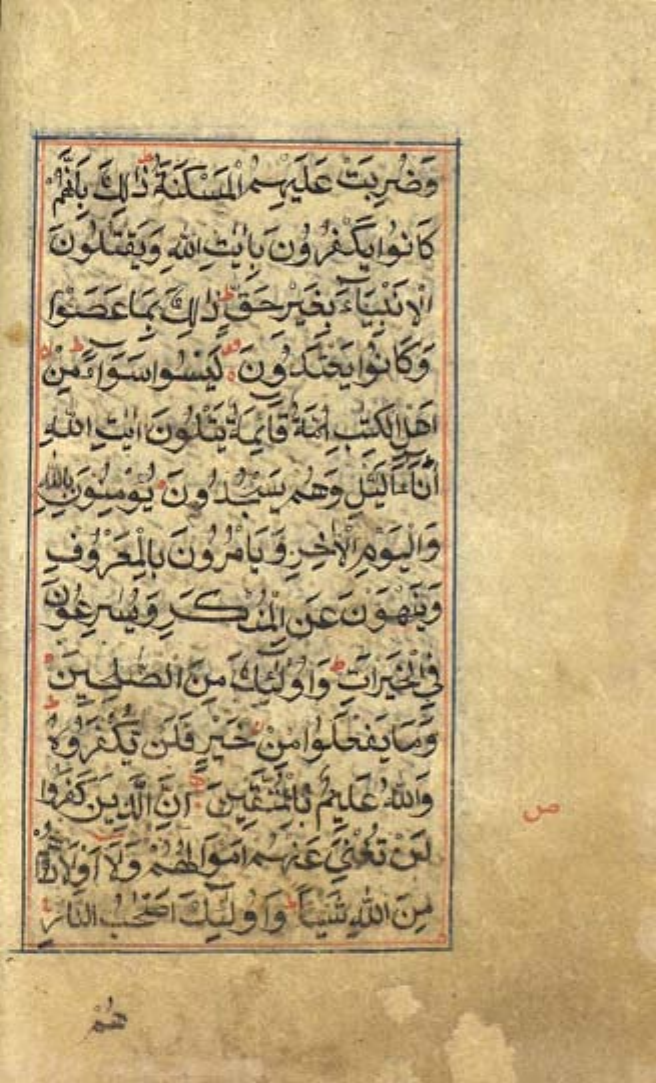 وَضُرِبَتْ عَلَيْهِمُ الْمَسْكَنَةُ ط ذٰلِكَ بِاَنَّهُمْ
كَانُوا يَكْفُرُونَ بِاٰيٰتِ اللّٰهِ وَيَقْتُلُونَ
الْاَنْبِيَآءَ بِغَيْرِ حَقٍّ ط ذٰلِكَ بِمَا عَصَوْا
وَكَانُوا يَعْتَدُونَ لَيْسُوا سَوَآءً ط مِنْ
اَهْلِ الْكِتٰبِ اُمَّةٌ قَآئِمَةٌ يَتْلُونَ اٰيٰتِ اللّٰهِ
اٰنَآءَ الَّيْلِ وَهُمْ يَسْجُدُونَ يُؤْمِنُونَ بِاللّٰهِ
وَالْيَوْمِ الْاٰخِرِ وَيَاْمُرُونَ بِالْمَعْرُوفِ
وَيَنْهَوْنَ عَنِ الْمُنْكَرِ وَيُسٰرِعُونَ
فِي الْخَيْرَاتِ ط وَاُولٰٓئِكَ مِنَ الصّٰلِحِينَ
وَمَا يَفْعَلُوا مِنْ خَيْرٍ فَلَنْ يُكْفَرُوهُ ط
وَاللّٰهُ عَلِيمٌ بِالْمُتَّقِينَ اِنَّ الَّذِينَ كَفَرُوا
لَنْ تُغْنِيَ عَنْهُمْ اَمْوَالُهُمْ وَلَآ اَوْلَادُهُمْ
مِنَ اللّٰهِ شَيْئًا ط وَاُولٰٓئِكَ اَصْحٰبُ النَّارِ
ص
هُمْ